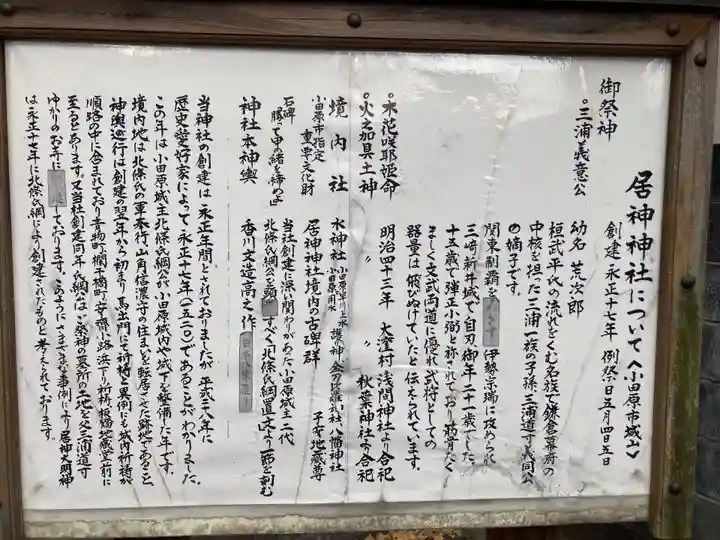 居神神社について〈小田原市城山〉
創建 永正十七年 例祭日五月四日五日
御祭神
・三浦義意公
幼名 荒次郎
桓武平氏の流れをくむ名族で鎌倉幕府の
中核を担った三浦一族の子孫三浦道寸義同公
の嫡子です。
関東制覇を 伊勢宗瑞に攻められ
三崎新井城で自刃御年二十一歳でした。
十五歳で弾正小弼と称されており
ましく文武両道に優れ武将としての
器量は飛びぬけていたと伝えられています。
・木花咲耶姫命 明治四十三年 大窪村浅間神社より合祀
・火之加具土神 〃 〃 秋葉神社より合祀
境内社 水神社 八幡神社
子安地蔵尊
小田原市指定
重要文化財
居神神社境内の古碑群
石碑
勝って甲の緒を締めよ
当社創建に深い関わりがあった小田原城主二代
北條氏綱公を 北條氏綱公置文より一節を刻む
神社本神輿 香川文造高之作
当神社の創建は永正年間とされておりましたが平成二十八年に
歴史愛好家によって永正十七年(一五二〇)であることがわかりました。
この年は小田原城主北條氏綱公が小田原城内や城下を整備した年です。
境内地は北條氏の軍奉行山角信濃守の住まいを転居させた跡地であること、
神輿巡行は創建の翌年から初まり馬出門にて祈祷と異例にも城内祈祷が
順路の中に含まれており青物町欄干橋町 板橋地蔵堂前に
至るとあります。又当社創建同年氏綱公はご祭神の墓所の土地を父三浦道寸
ゆかりのお寺に ております。このようにさまざまな事例により居神大明神
は永正十七年に北條氏綱により創建されたものと考えられております。